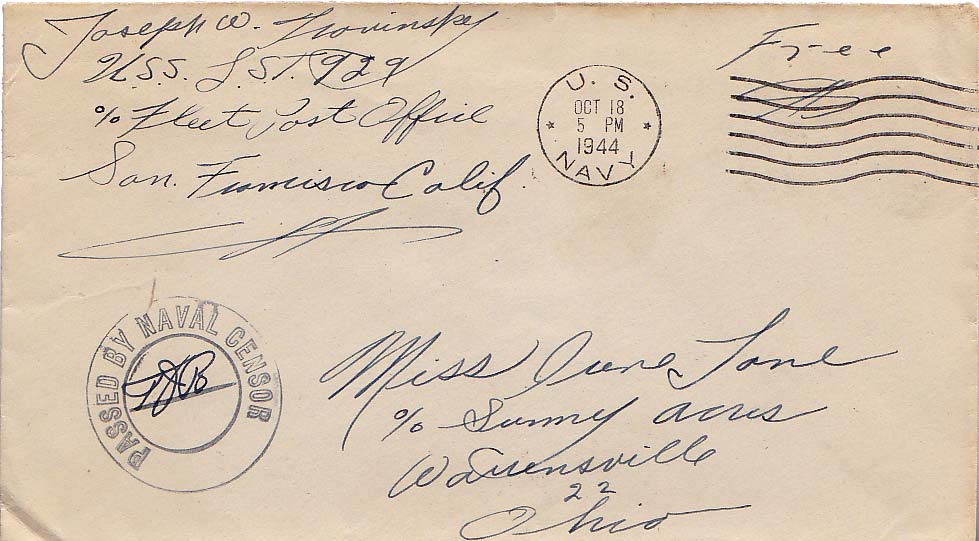 Joseph W.
U.S.S. L.ST. 929
% Fleet Post Office
San. Francisco Calif.
Free
U. S.
OCT 18
5 PM
1944
NAVY
PASSED BY NAVAL CENSOR
Miss June Lane
% Sunny acres
Warrensville
22
Ohio